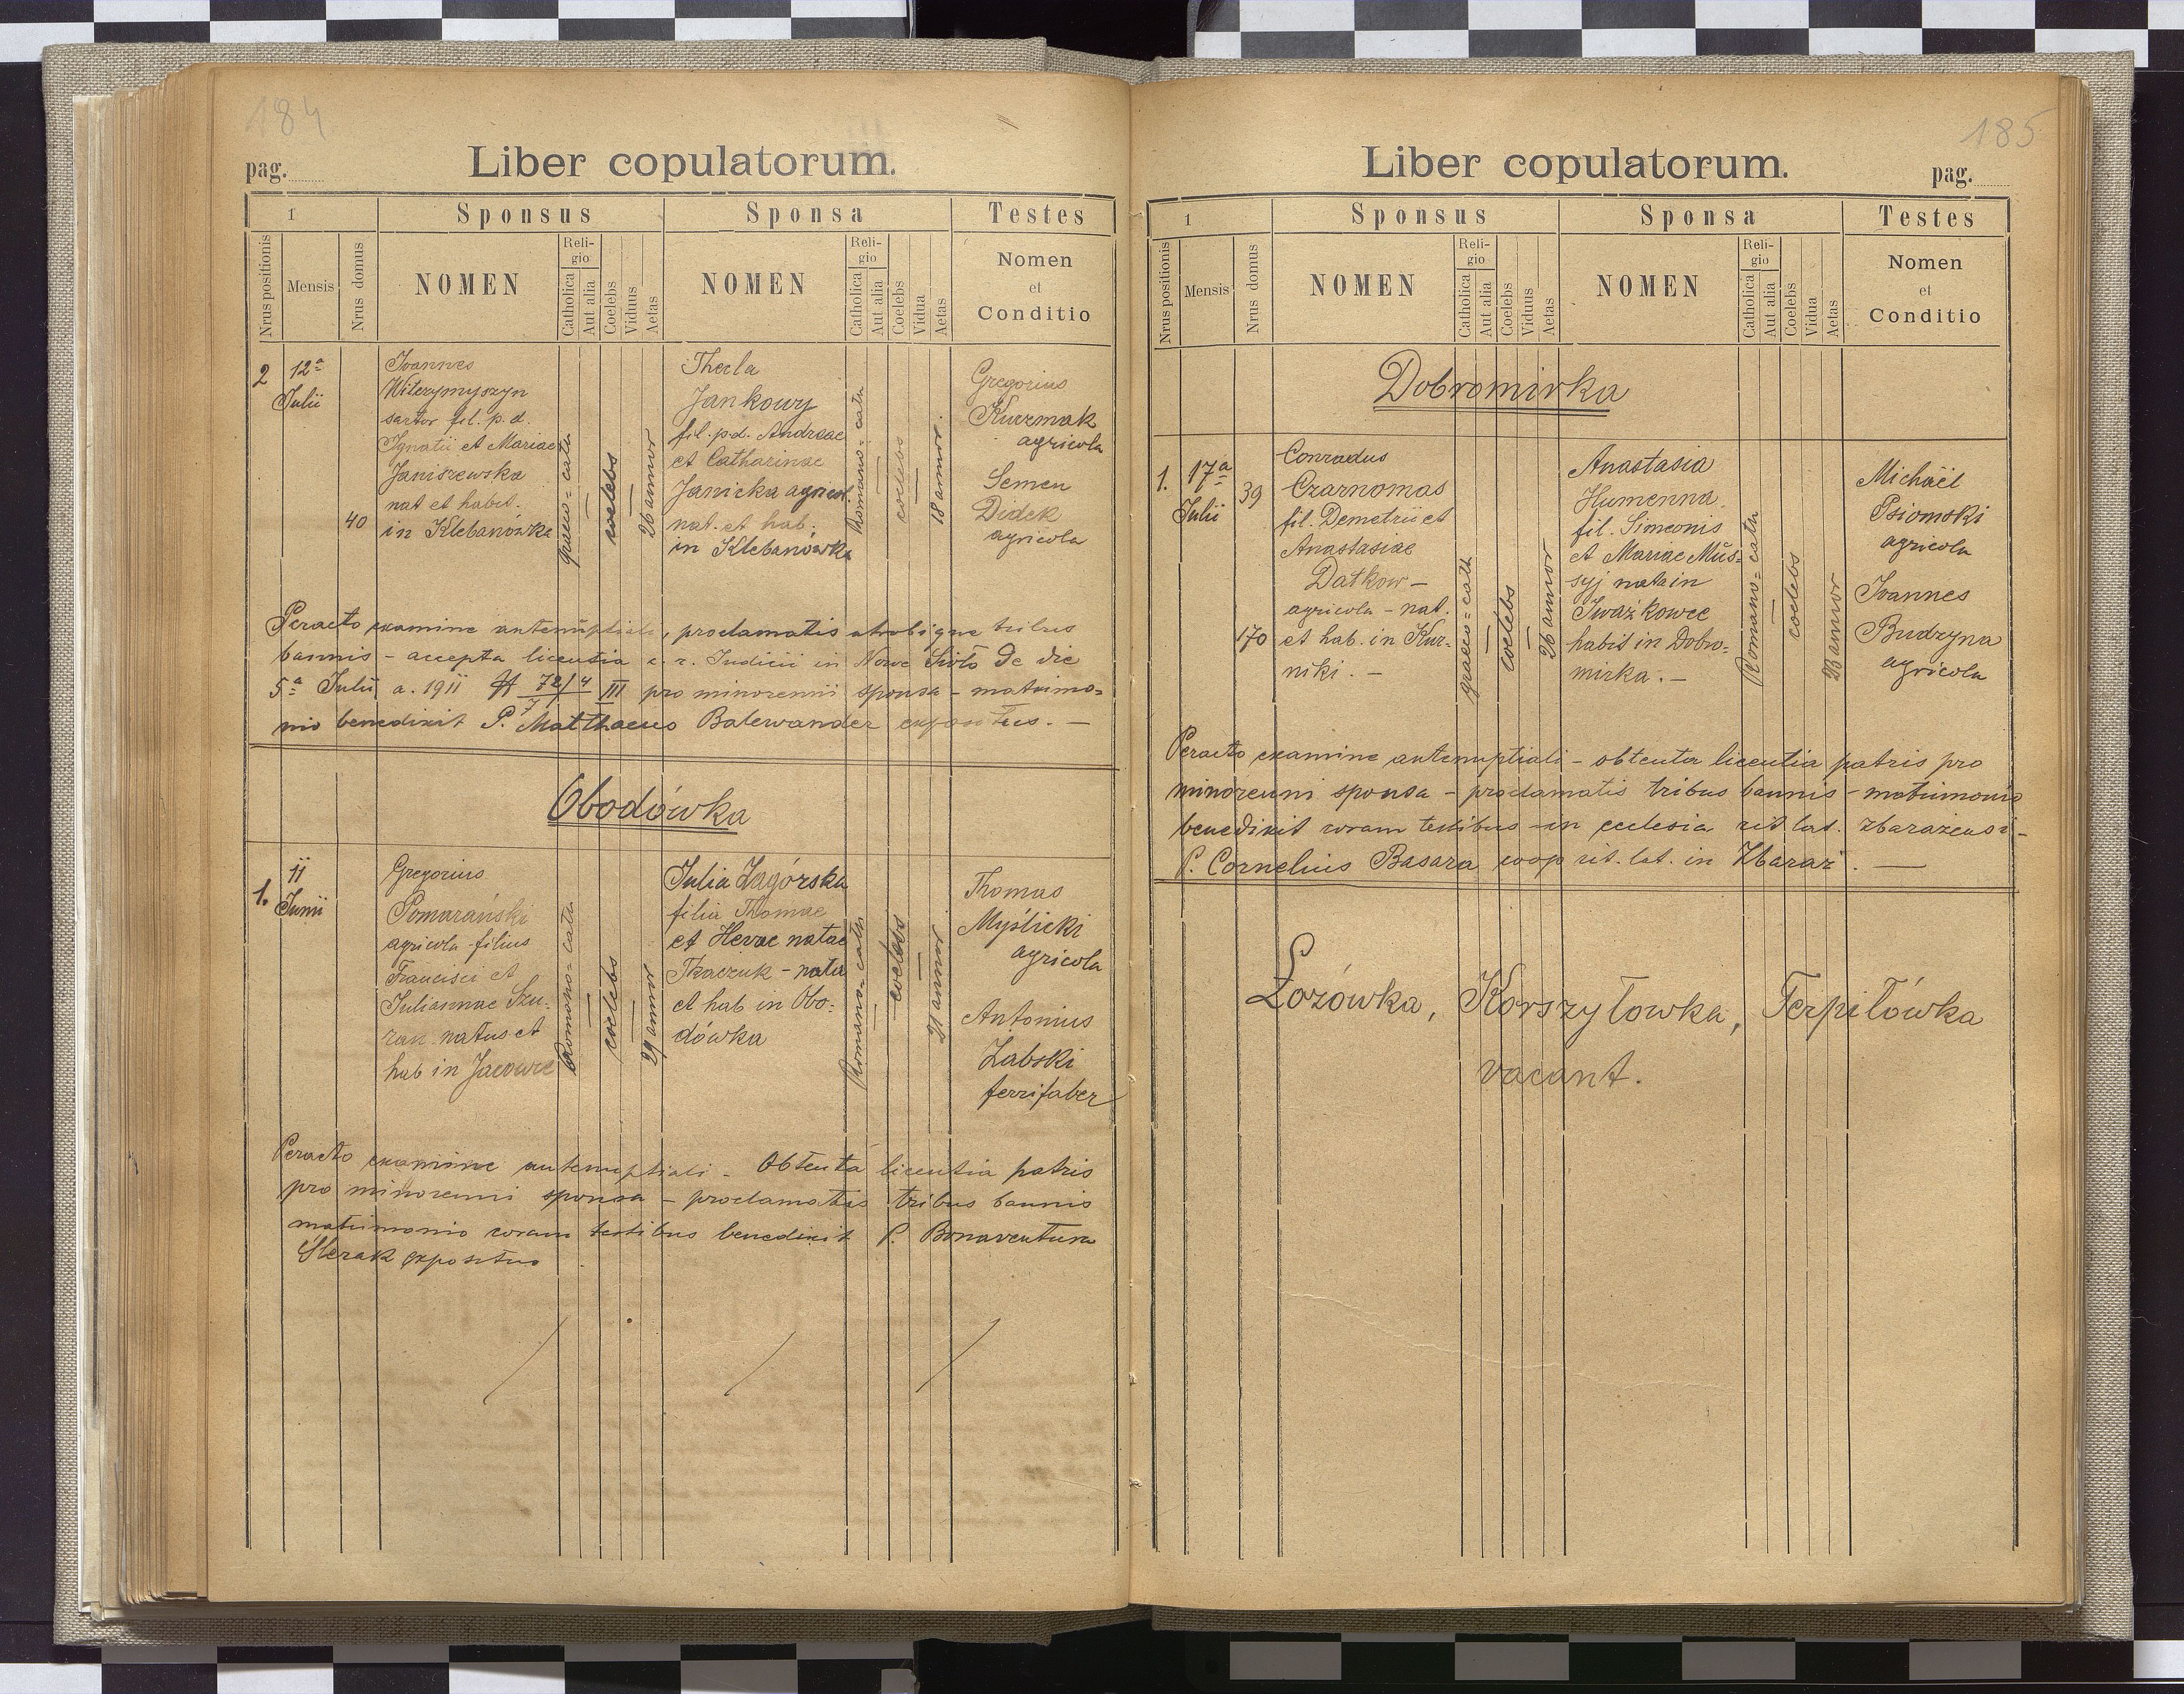 184
pag.
Liber copulatorum.
1
Sponsus
Sponsa
Testes
Nrus positionis
Mensis
Nrus domus
NOMEN
Religio
Catholica
Aut alia
Coelebs
Viduus
Aetas
NOMEN
Religio
Catholica
Aut alia
Coelebs
Vidua
Aetas
Nomen
et
Conditio
2
12ª
Julii
40
Ioannes
Witezymyszyn
sartor fil. p. d.
Ignatii et Mariae
Janiszewska
nat et habit.
in Klebanówka
graeco=cath
coelebs
26 annor
Thecla
Jankowy
fil. p.d. Andreae
et Catharinae
Janicka agricol.
nat. et hab.
in Klebanówka
Romano=cath
coelebs
18 annor.
Gregorius
Kuzmak
agricola
Semen
Didek
agricola
Peracto examine antenuptiali, proclamatis utrobique tribus
bannis - accepta licentia c. r. Iudicii in Nowe Sioło de die
5ª Julii a. 1911 72/4 III pro minorenni sponsa - matrimo=
7
nio benedixit P. Matthaeus Balewander expositus. —
Obodówka
1.
11
Junii
Gregorius
Pomarański
agricola - filius
Francisci et
Juliannae Szu-
rak natus et
hab in Jacowce
Romano=cath
coelebs
29 annor
Julia Zagórska
filia Thomae
et Hevae natae
Tkaczuk - nata
et hab in Obo-
dówka
Romano=cath
coelebs
21 annor
Thomas
Myślicki
agricola
Antonius
Żabski
ferrifaber
Peracto examine antenuptiali - Obtenta licentia patris
pro minorenni sponsa - proclamatis tribus bannis
matrimonio coram testibus benedixit P. Bonaventura
expositus
185
Liber copulatorum.
pag.
1
Sponsus
Sponsa
Testes
Nrus positionis
Mensis
Nrus domus
NOMEN
Religio
Catholica
Aut alia
Coelebs
Viduus
Aetas
NOMEN
Religio
Catholica
Aut alia
Coelebs
Vidua
Aetas
Nomen
et
Conditio
Dobromirka
1.
17ª
Julii
39
170
Conradus
Czarnomas
fil. Demetrii et
Anastasiae
Datkow -
agricola - nat.
et hab. in Kur-
niki. -
graeco=cath
coelebs
26 annor
Anastasia
Humenna
fil. Simeonis
et Mariae Mus=
syj nata in
Iwaźkowce
habit in Dobro=
mirka. -
Romano=cath
coelebs
Michaël
Psiomski
agricola
Ioannes
Budzyna
agricola
Peracto examine antenuptiali - obtenta licentia patris pro
minorenni sponsa - proclamatis tribus bannis - matrimonio
benedixit coram testibus in ecclesia rit lat. Zbarazensi -
P. Cornelius Basara coop rit. lat. in Zbaraż. —
Łozówka, Korszyłowka, Terpiłówka
vacant.